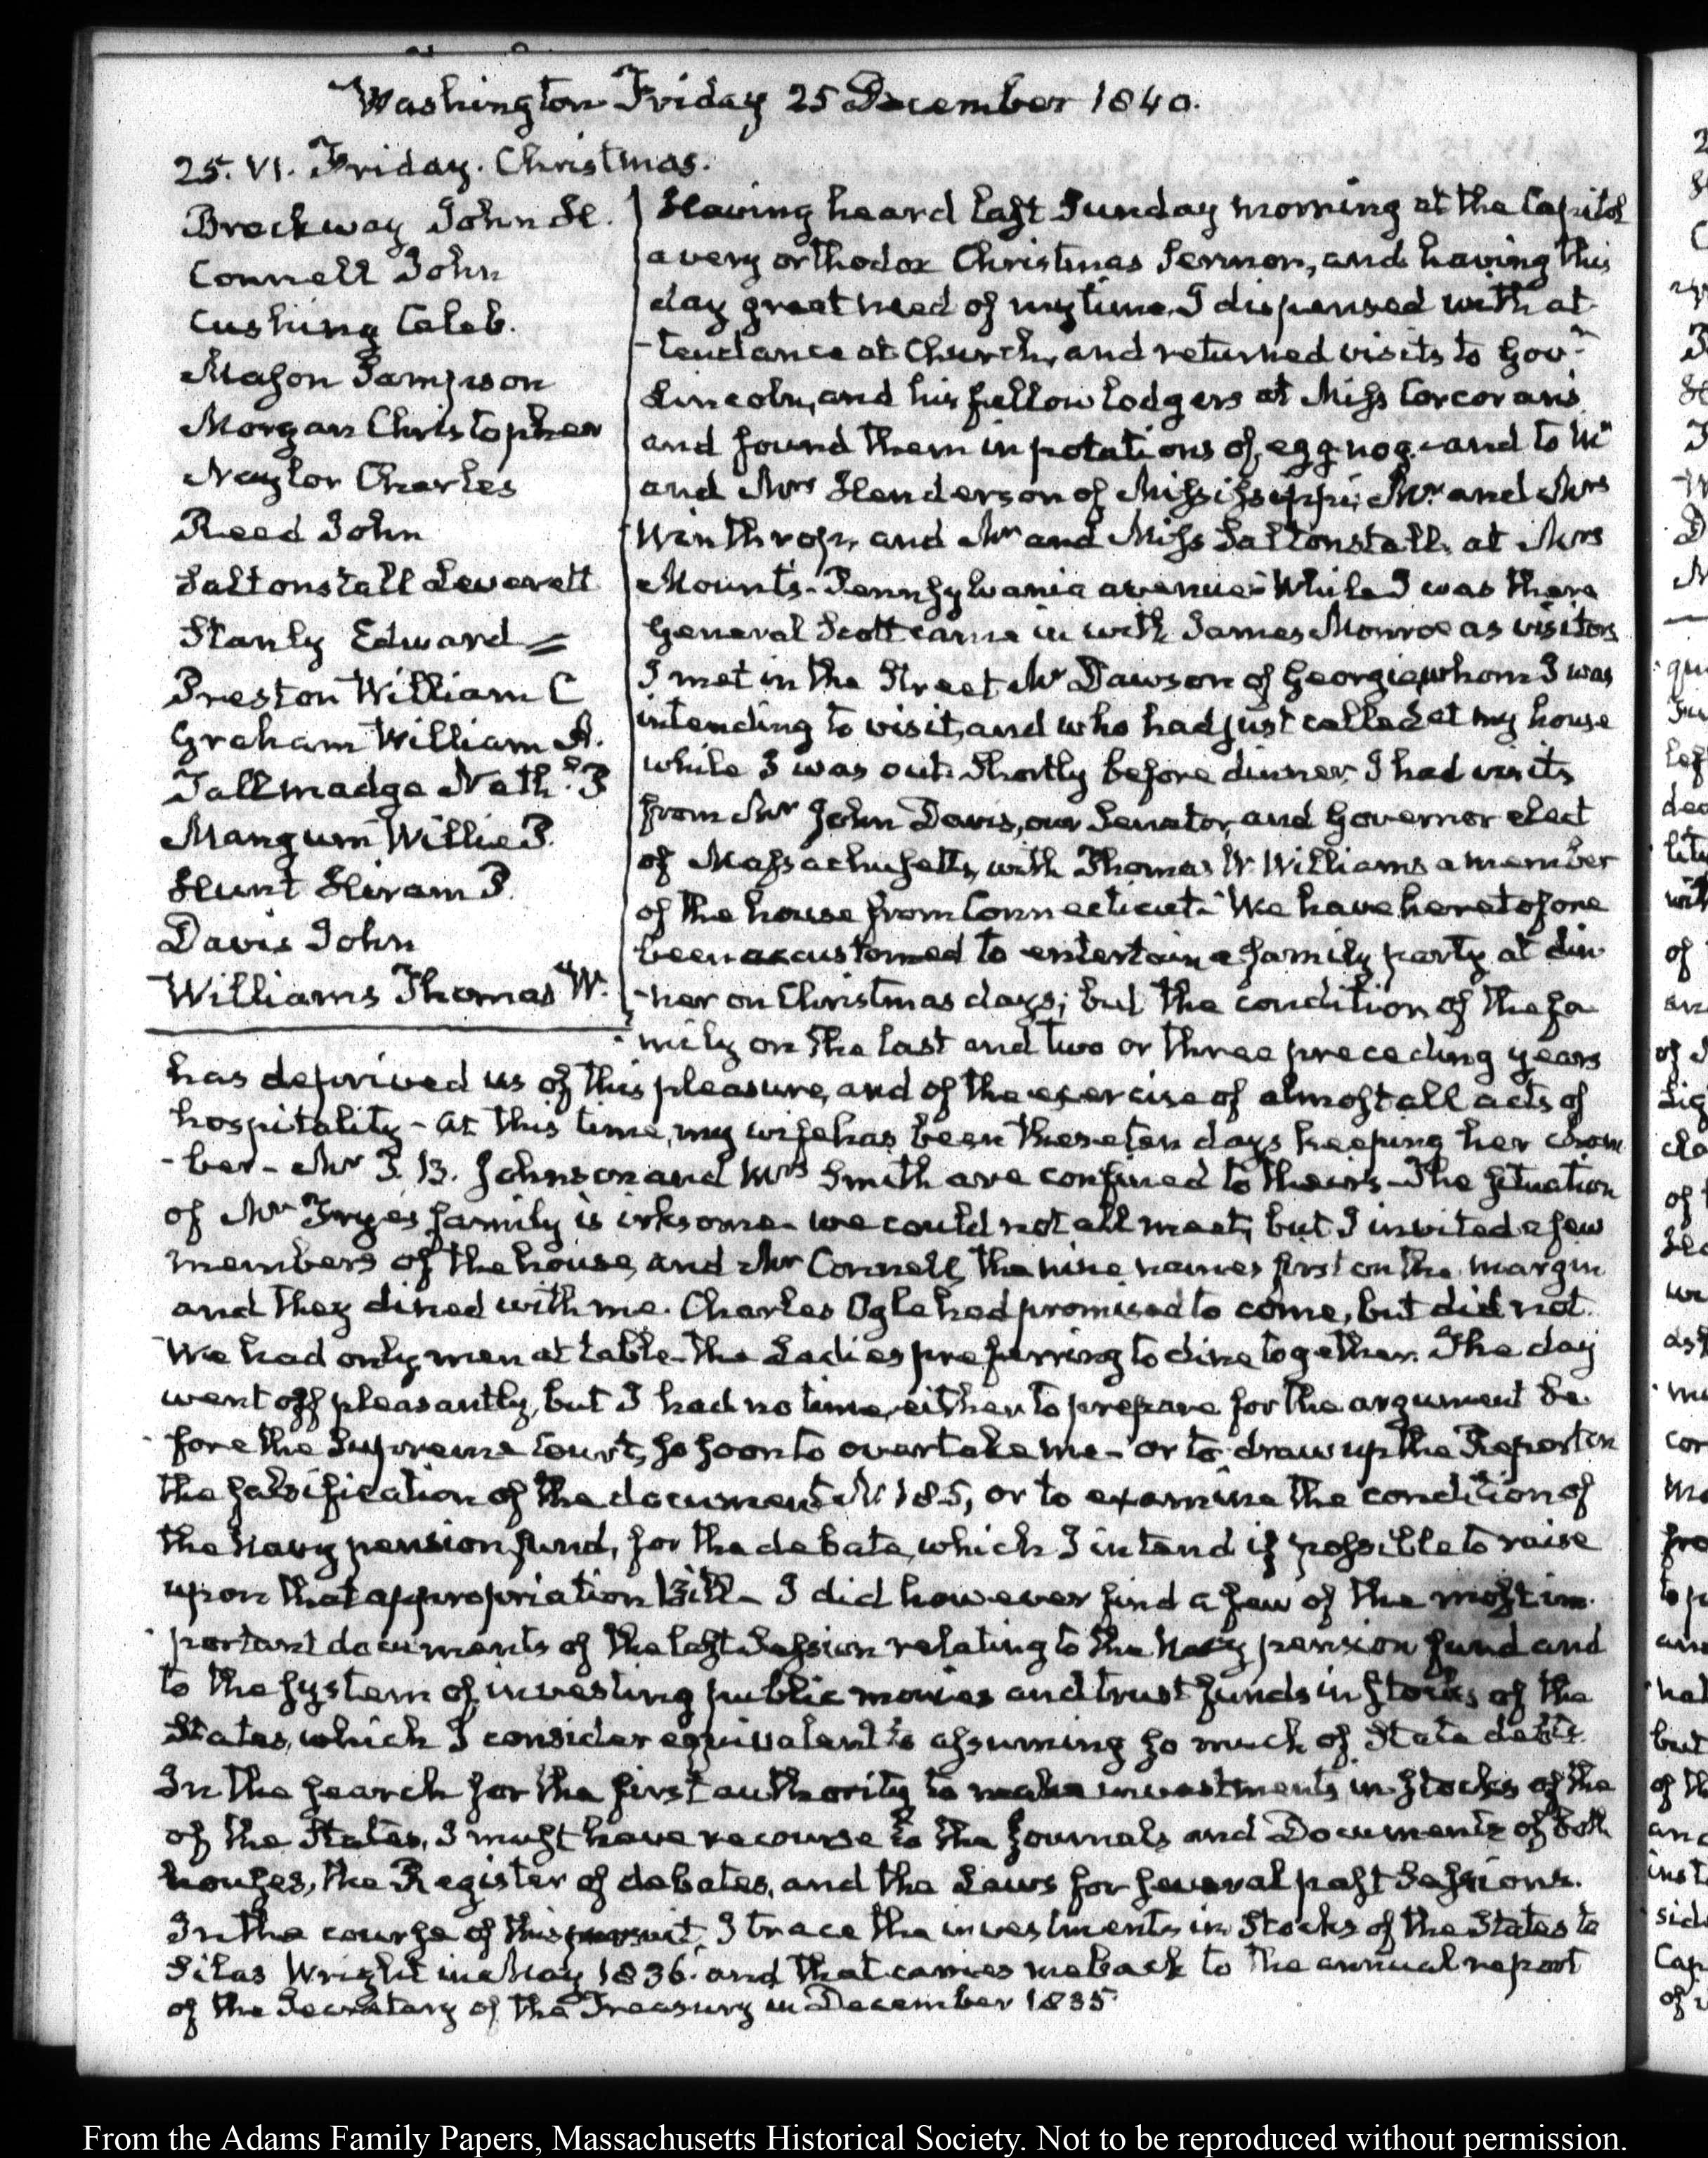 Washington Friday 25 December 1840.
25. VI. Friday. Christmas.
Brockway John H.
Connell John
Cushing Caleb.
Mason Sampson
Morgan Christopher
Naylor Charles
Reed John
Saltonstall Leverett
Stanly Edward =
Preston William C
Graham William A.
Tallmadge Nath.l P
Mangum Willie P.
Hunt Hiram P.
Davis John
Williams Thomas W.
Having heard last Sunday morning at the Capitol
a very orthodox Christmas Sermon, and having this
day great need of my time, I dispensed with at-
-tendance at Church, and returned visits to Gov.r
Lincoln, and his fellow lodgers at Miss Corcoran's
and found them in potations of egg nog - and to Mr
and Mrs Henderson of Mississippi, Mr and Mrs
Winthrop, and Mr and Miss Saltonstall, at Mrs
Mount's - Pennsylvania avenue - While I was there
General Scott came in with James Monroe as visitors
I met in the Street Mr Dawson of Georgia, whom I was
intending to visit, and who had just called at my house
while I was out. Shortly before dinner, I had visits
from Mr John Davis, our Senator, and Governor elect
of Massachusetts, with Thomas W. Williams a member
of the house from Connecticut - We have heretofore
been accustomed to entertain a family party at din-
-ner on Christmas days; but the condition of the fa-
-mily on the last and two or three preceding years
has deprived us of this pleasure, and of the exercise of almost all acts of
hospitality - at this time, my wife has been these ten days keeping her cham-
-ber - Mr T. B. Johnson and Mrs Smith are confined to theirs - The situation
of Mr Frye's family is irksome - we could not all meet; but I invited a few
members of the house, and Mr Connell, the nine names first on the margin
and they dined with me. Charles Ogle had promised to come, but did not.
We had only men at table - the Ladies preferring to dine together. The day
went off pleasantly, but I had no time, either to prepare for the argument be-
-fore the Supreme Court, so soon to overtake me - or to draw up the Report on
the falsification of the document N. 185, or to examine the condition of
the Navy pension fund, for the debate, which I intend if possible to raise
upon that appropriation Bill - I did however find a few of the most im-
-portant documents of the last Session relating to the Navy pension fund and
to the system of investing public monies and trust funds in stocks of the
States, which I consider equivalent to assuming so much of State debts.
In the search for the first authority to make investments in stocks of the
of the States, I must have recourse to the Journals and Documents of both
houses, the Register of debates, and the Laws for several past Sessions.
In the course of this pursuit, I trace the investments in Stocks of the States to
Silas Wright in May 1836. and that carries me back to the annual report
of the Secretary of the Treasury in December 1835.
From the Adams Family Papers, Massachusetts Historical Society. Not to be reproduced without permission.